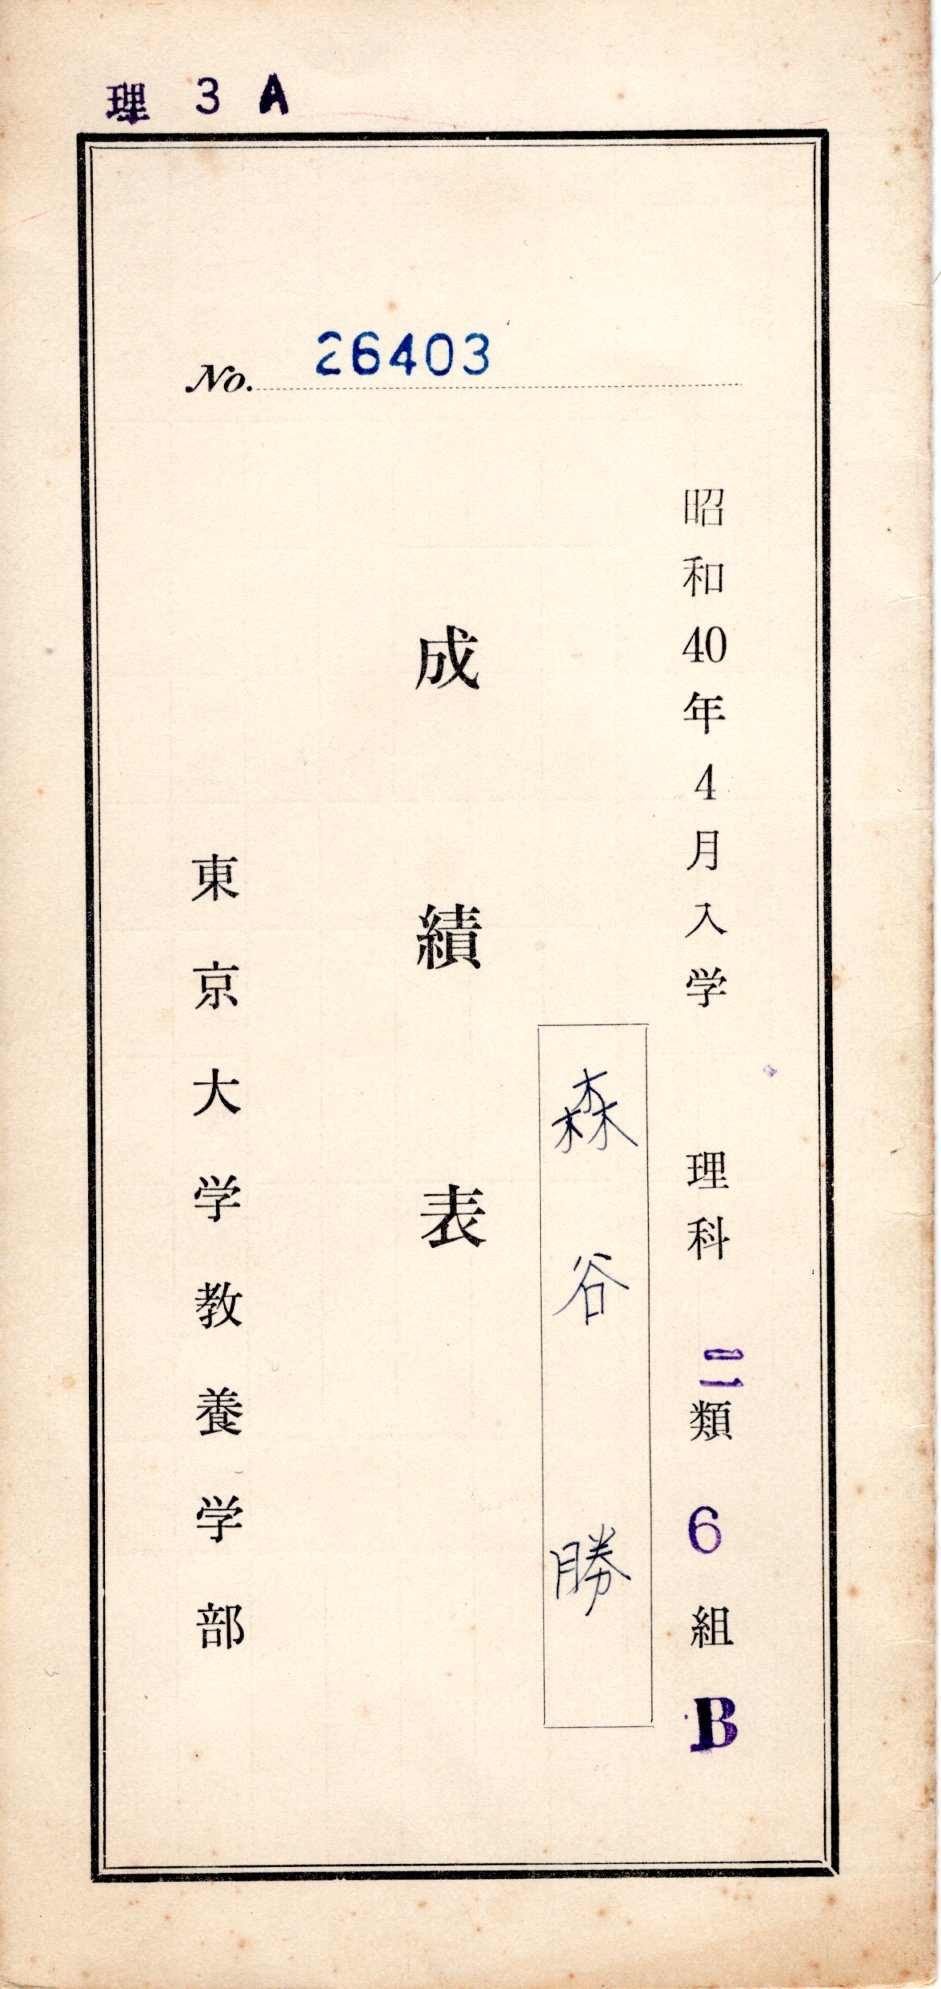 理 3 A
No. 26403
昭和40年4月入学 理科 二類 6 組 B
森谷勝
成績表
東京大学教養学部